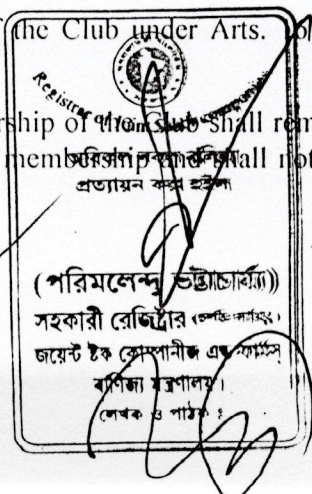 the Club under Arts.
Registrar of Joint Stock
rship of the Club shall rem
membership and shall not
অবিকল নকল বলিয়া
প্রত্যায়ন করা হইল।
(পরিমলেন্দু ভট্টাচার্য্য)
সহকারী রেজিষ্ট্রার
জয়েন্ট ষ্টক কোম্পানীজ এন্ড ফার্মস
বাণিজ্য মন্ত্রণালয়।
লেখক ও পাঠক :